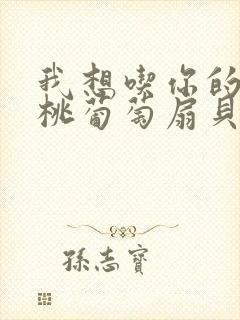 我想喫你的
桃葡萄扇貝
孫志寶